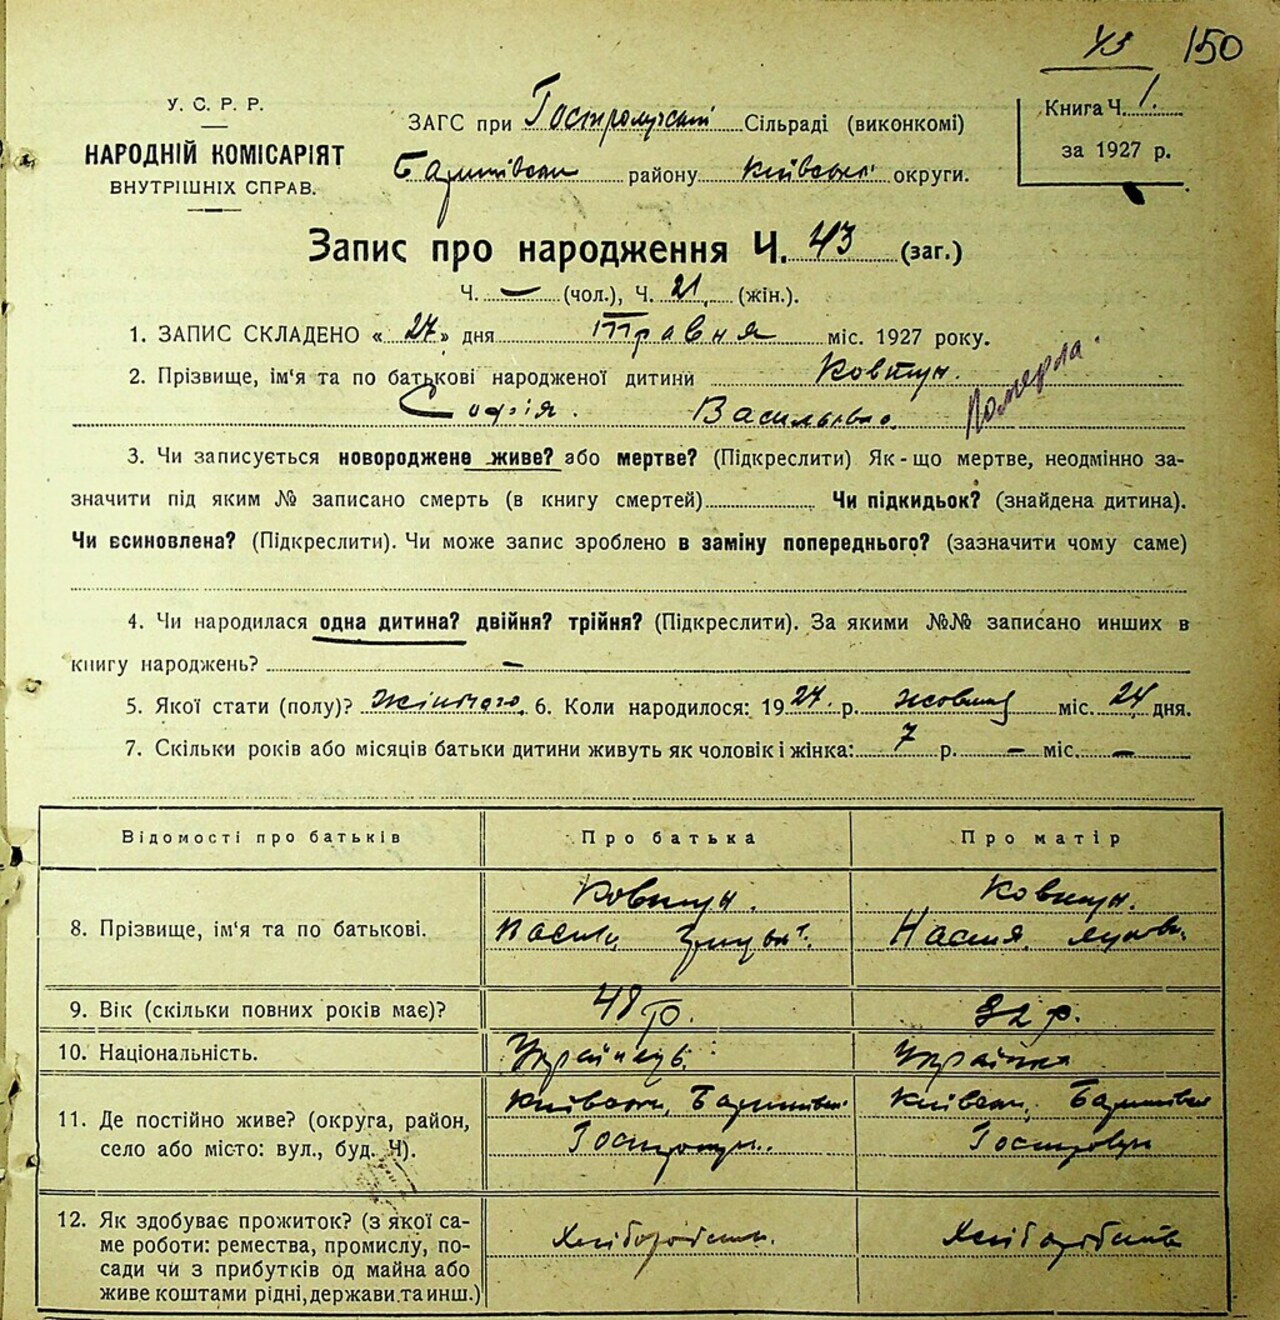 43 150
У. С. Р. Р.
НАРОДНІЙ КОМІСАРІЯТ
ВНУТРІШНІХ СПРАВ.
ЗАГС при Гостролуцькій Сільраді (виконкомі)
Баришівськ району Київської округи.
Книга Ч. 1.
за 1927 р.
Запис про народження Ч. 43 (заг.)
Ч. — (чол.), Ч. 21. (жін.).
1. ЗАПИС СКЛАДЕНО «27» дня Травня міс. 1927 року.
2. Прізвище, ім'я та по батькові народженої дитини Ковтун.
Софія. Васильївна. Померла.
3. Чи записується новороджене живе? або мертве? (Підкреслити) Як-що мертве, неодмінно за-
значити під яким № записано смерть (в книгу смертей) Чи підкидьок? (знайдена дитина).
Чи єсиновлена? (Підкреслити). Чи може запис зроблено в заміну попереднього? (зазначити чому саме)
4. Чи народилася одна дитина? двійня? трійня? (Підкреслити). За якими №№ записано инших в
книгу народжень? —
5. Якої стати (полу)? жіночого. 6. Коли народилося: 1927. р. міс. 24 дня.
7. Скільки років або місяців батьки дитини живуть як чоловік і жінка: 7 р. — міс. —
Відомості про батьків Про батька Про матір
8. Прізвище, ім'я та по батькові. Ковтун. Ковтун.
Настя.
9. Вік (скільки повних років має)? 48 р. 32 р.
10. Національність. Українець. Українка
11. Де постійно живе? (округа, район, село або місто: вул., буд. Ч). Київськ, Баришівськ Київськ, Баришівськ
12. Як здобуває прожиток? (з якої са-
ме роботи: ремества, промислу, по-
сади чи з прибутків од майна або
живе коштами рідні, держави та инш.)
Хліборобств. Хліборобств